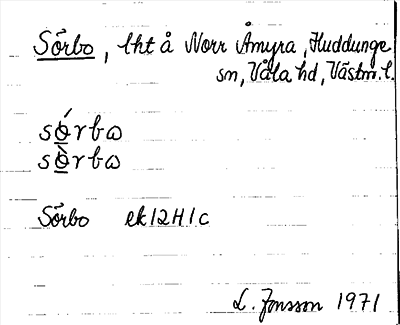 Sörbo, lht å Norr Åmyra, Huddunge
sn, Våla hd, Västm. l.
só̲rbω
sò̲rbω
Sörbo ek 12H1c
L. Jonsson 1971